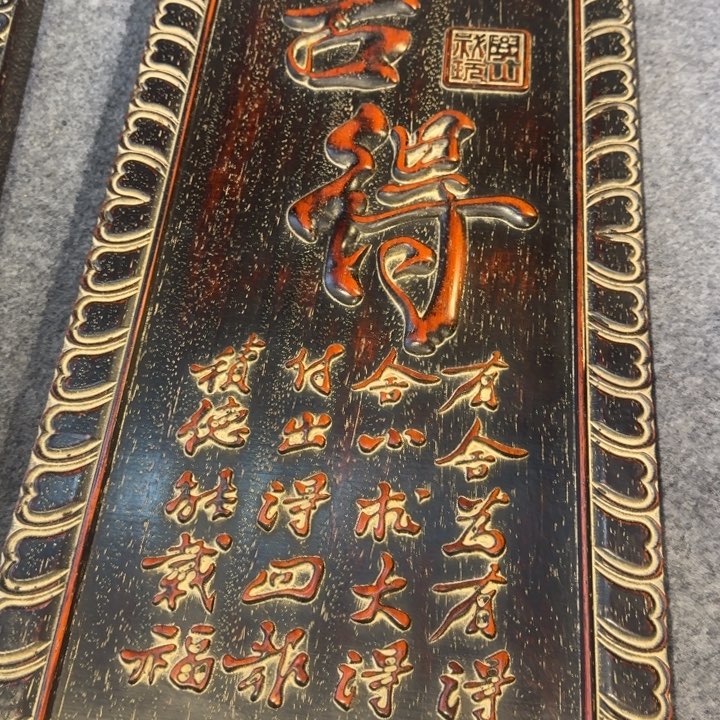 舍得
有舍有得
舍小求大得
付出得回報
積德能載福